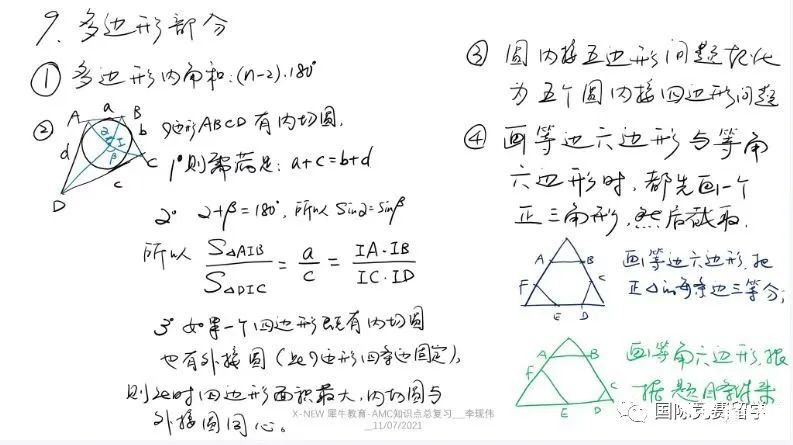 9. 多边形部分
① 多边形内角和:(n-2)·180°
②
A a B
b
I
α
β
d
C
c
D
四边形ABCD有内切圆,
1° 则需满足: a+c=b+d
2° α+β=180°, 所以 sinα=sinβ
所以 S△AIB / S△DIC = a / c = IA·IB / IC·ID
3° 如果一个四边形既有内切圆
也有外接圆(此四边形四条边固定),
则此时四边形面积最大,内切圆与
外接圆同心。
③ 圆内接五边形问题转化
为五个圆内接四边形问题
④ 画等边六边形与等角
六边形时,都先画一个
正三角形,然后截取.
A B
F C
E D
画等边六边形,把
正△的每条边三等分;
A B
F C
E D
画等角六边形,根
据题目条件来
X-NEW 犀牛教育-AMC知识点总复习__李现伟
__11/07/2021
国际竞赛留学